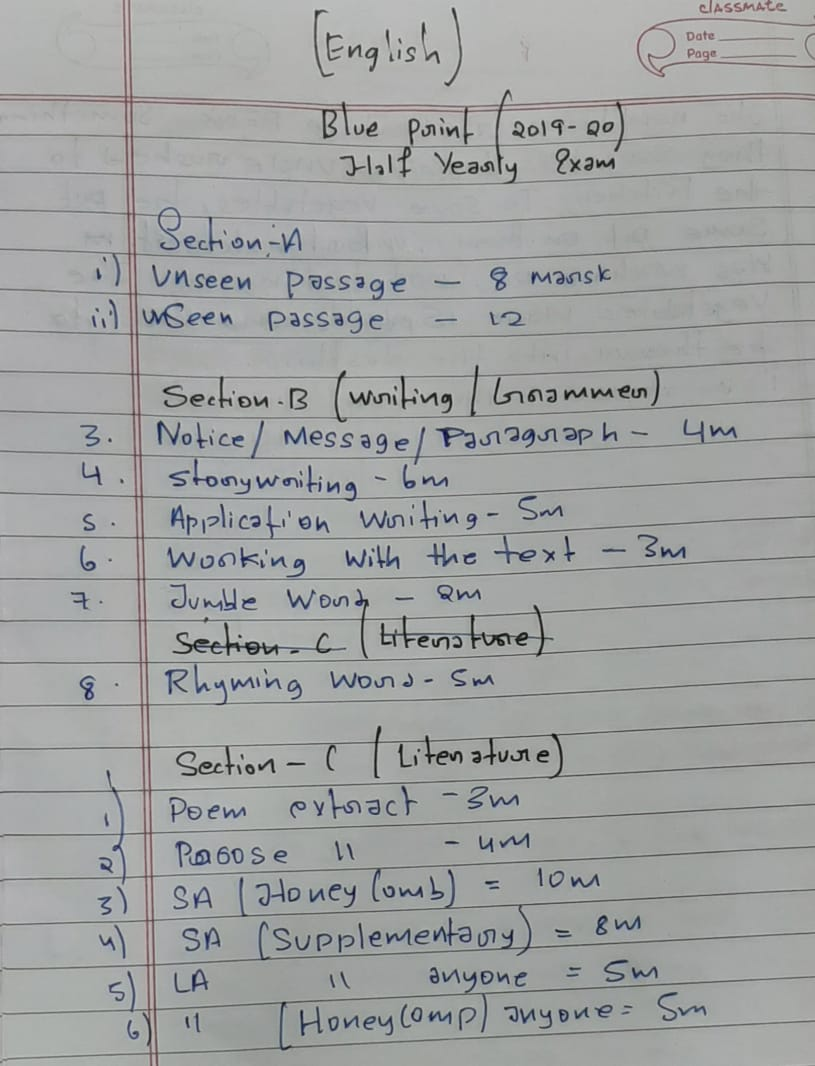 classmate
Date
Page
[English)
Blue Print (2019-20)
Half Yearly Exam
Section-A
i) Unseen passage - 8 marsk
ii) unSeen passage - 12
Section-B (writing / Grammer)
3. Notice/ Message/ Paragraph - 4m
4. Storywriting - 6m
5. Application Writing - 5m
6. Working with the text - 3m
7. Jumble Word - 2m
Section-C (Literature)
8. Rhyming Word - 5m
Section - C (Literature)
1) Poem extract - 3m
2) Prose 11 - 4m
3) SA (Honey Comb) = 10m
4) SA (Supplementary) = 8m
5) LA 11 anyone = 5m
6) 11 [HoneyComp) anyone = 5m